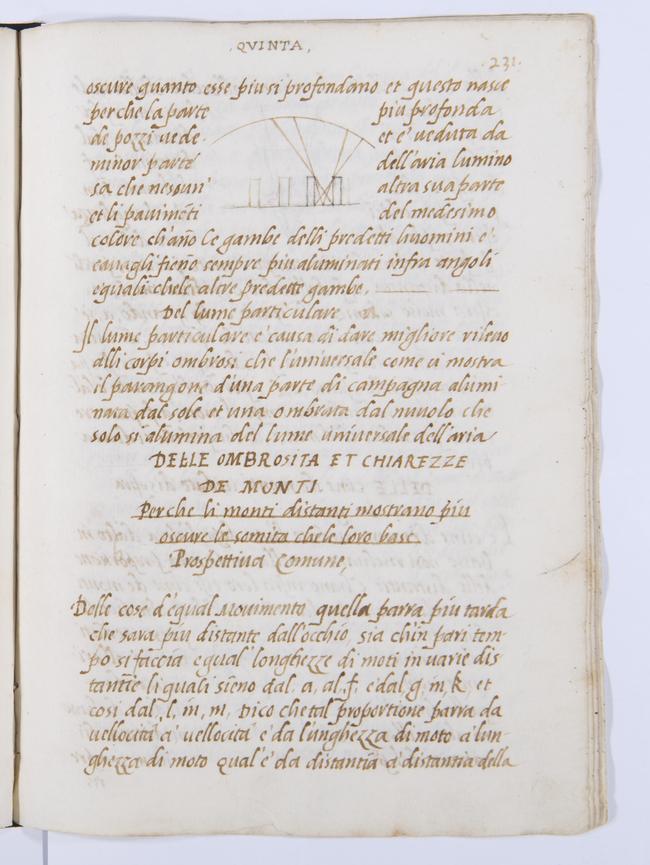 .QVINTA.
.231.
oscure quanto esse piu si profondano et questo nasce
perche la parte piu profonda
de pozzi uede et e' ueduta da
minor parte dell'aria lumino
sa che nesoun' altra sua parte
et li pauimēti del medesimo
colore ch'año le gambe delli predetti huomini e'
cauagli fieño sempre piu aluminati infra angoli
equali che le altre predette gambe.
Del lume particulare
Il lume particulare e' causa di dare migliore rileuo
alli corpi ombrosi che l'uniuersale come ci mostra
il parangone d'una parte di campagna alumi-
nata dal sole et una ombrata dal nuuolo che
solo si alumina del lume uniuersale dell'aria
DELLE OMBROSITA ET CHIAREZZE
DE MONTI
Perche li monti distanti mostrano piu
oscure le somita che le loro base.
Prospettiua Comune,
Delle cose d'equal mouimento quella parra piu tarda
che sara piu distante dall'occhio, sia ch'in pari tem-
po si faccia equal' longhezze di moti in uarie dis
tantie li quali sieno dal. a, al. f. e dal g. in, k, et
cosi dal, l, in, m, Dico che tal proportione parra da
uellocita a' uellocita e' da lunghezza di moto a' lun-
ghezza di moto qual' e' da distantia a' distantia della